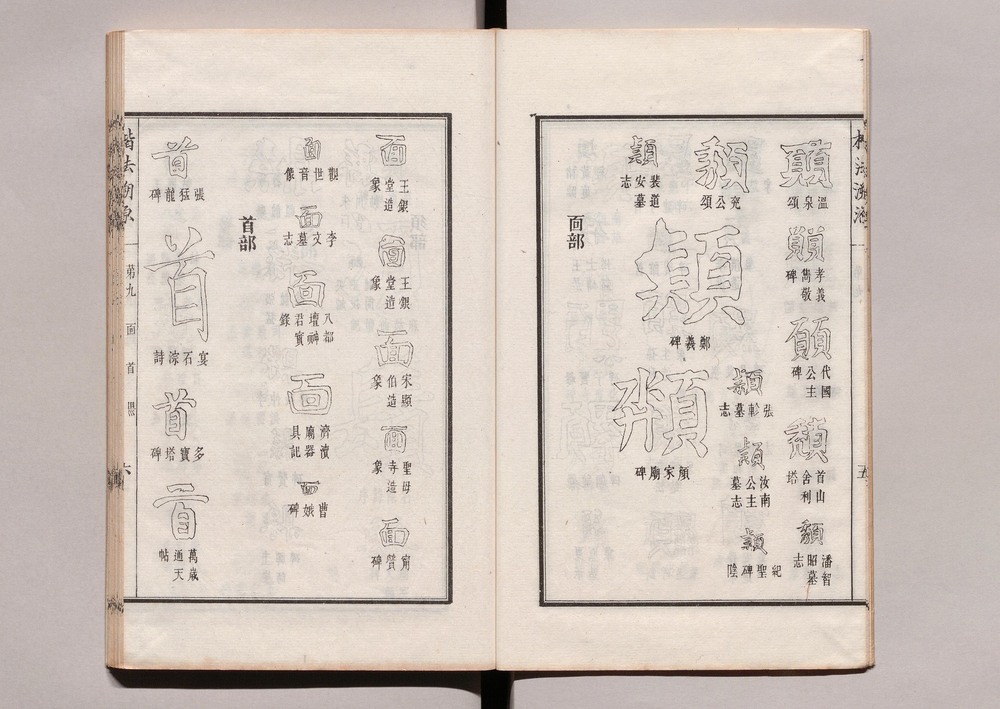 楷法溯源
五
顛
溫泉頌
孝義雋敬碑
願
代國公主碑
首山舍利塔
潘智昭墓志
兗公頌
鄭羲碑
張軫墓志
汝南公主墓志
紀聖碑陰
裴道安墓志
顏家廟碑
面部
面
王銀堂造象
面
王銀堂造象
面
宋顯伯造象
面
聖母寺造象
面
甯贙碑
面
觀世音像
面
李文墓志
面
八都壇神君實錄
面
濟瀆廟器具記
面
曹娥碑
首部
首
張猛龍碑
首
宴石淙詩
首
多寶塔碑
首
萬歲通天帖
楷法溯原
第九 面 首
六